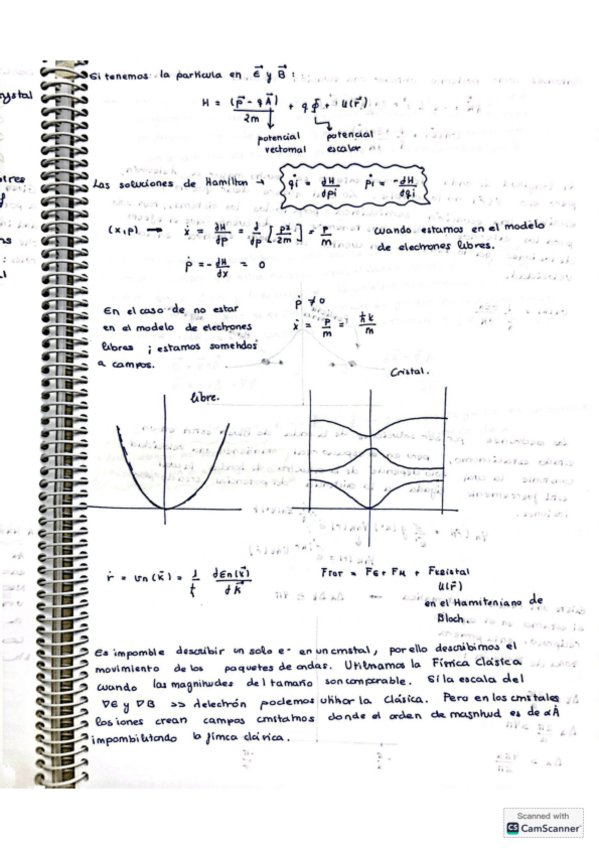 Si tenemos la partícula en E⃗ y B⃗ :
H = (p⃗ - qA⃗) / 2m + qΦ + U(r⃗)
potencial vectorial
potencial escalar
Las soluciones de Hamilton → q̇i = dH/dpi ṗi = -dH/dqi
(x,p) → ẋ = dH/dp = d/dp [p2/2m] = p/m cuando estamos en el modelo
de electrones libres.
ṗ = - dH/dx = 0
En el caso de no estar
en el modelo de electrones
libres ; estamos sometidos
a campos.
ṗ ≠ 0
ẋ = p/m = ħk/m
libre.
Cristal.
ṙ = vn(k⃗) = 1/ℏ dEn(k⃗)/dk⃗
FTOT = FE + FH + Fcristal
U(r⃗)
en el Hamiltoniano de
Bloch.
Es imposible describir un solo e- en un cristal, por ello describimos el
movimiento de los paquetes de ondas. Utilizamos la Física Clásica
cuando las magnitudes del tamaño son comparable. Si la escala del
∇E y ∇B >> delectrón podemos utilizar la Clásica. Pero en los cristales
los iones crean campos cristalinos donde el orden de magnitud es de aÅ
imposibilitando la física clásica.
ystal
Scanned with
CS CamScanner